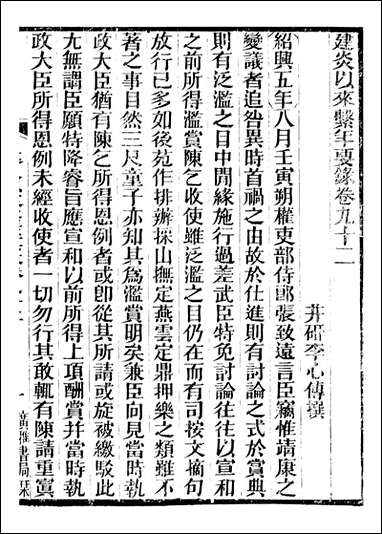 建炎以來繫年要錄卷九十二
井研李心傳撰
紹興五年八月壬寅朔權吏部侍郎張致遠言臣竊惟靖康之
變議者追咎異時首禍之由故於仕進則有討論之式於賞典
則有泛濫之目中閒緣施行過差武臣特免討論往往以宣和
之前所得濫賞陳乞收使雖泛濫之目仍在而有司按文摘句
放行已多如後苑作排辦採山撫定燕雲定鼎押樂之類雖不
著之事目然三尺童子亦知其爲濫賞明矣兼臣向見當時執
政大臣猶有陳乞所得恩例者或卽從其所請或旋被繳駁此
尢無謂臣願特降睿旨應宣和以前所得上項酬賞并當時執
政大臣所得恩例未經收使者一切勿行其敢輒有陳請重寘
一
廣雅書局栞